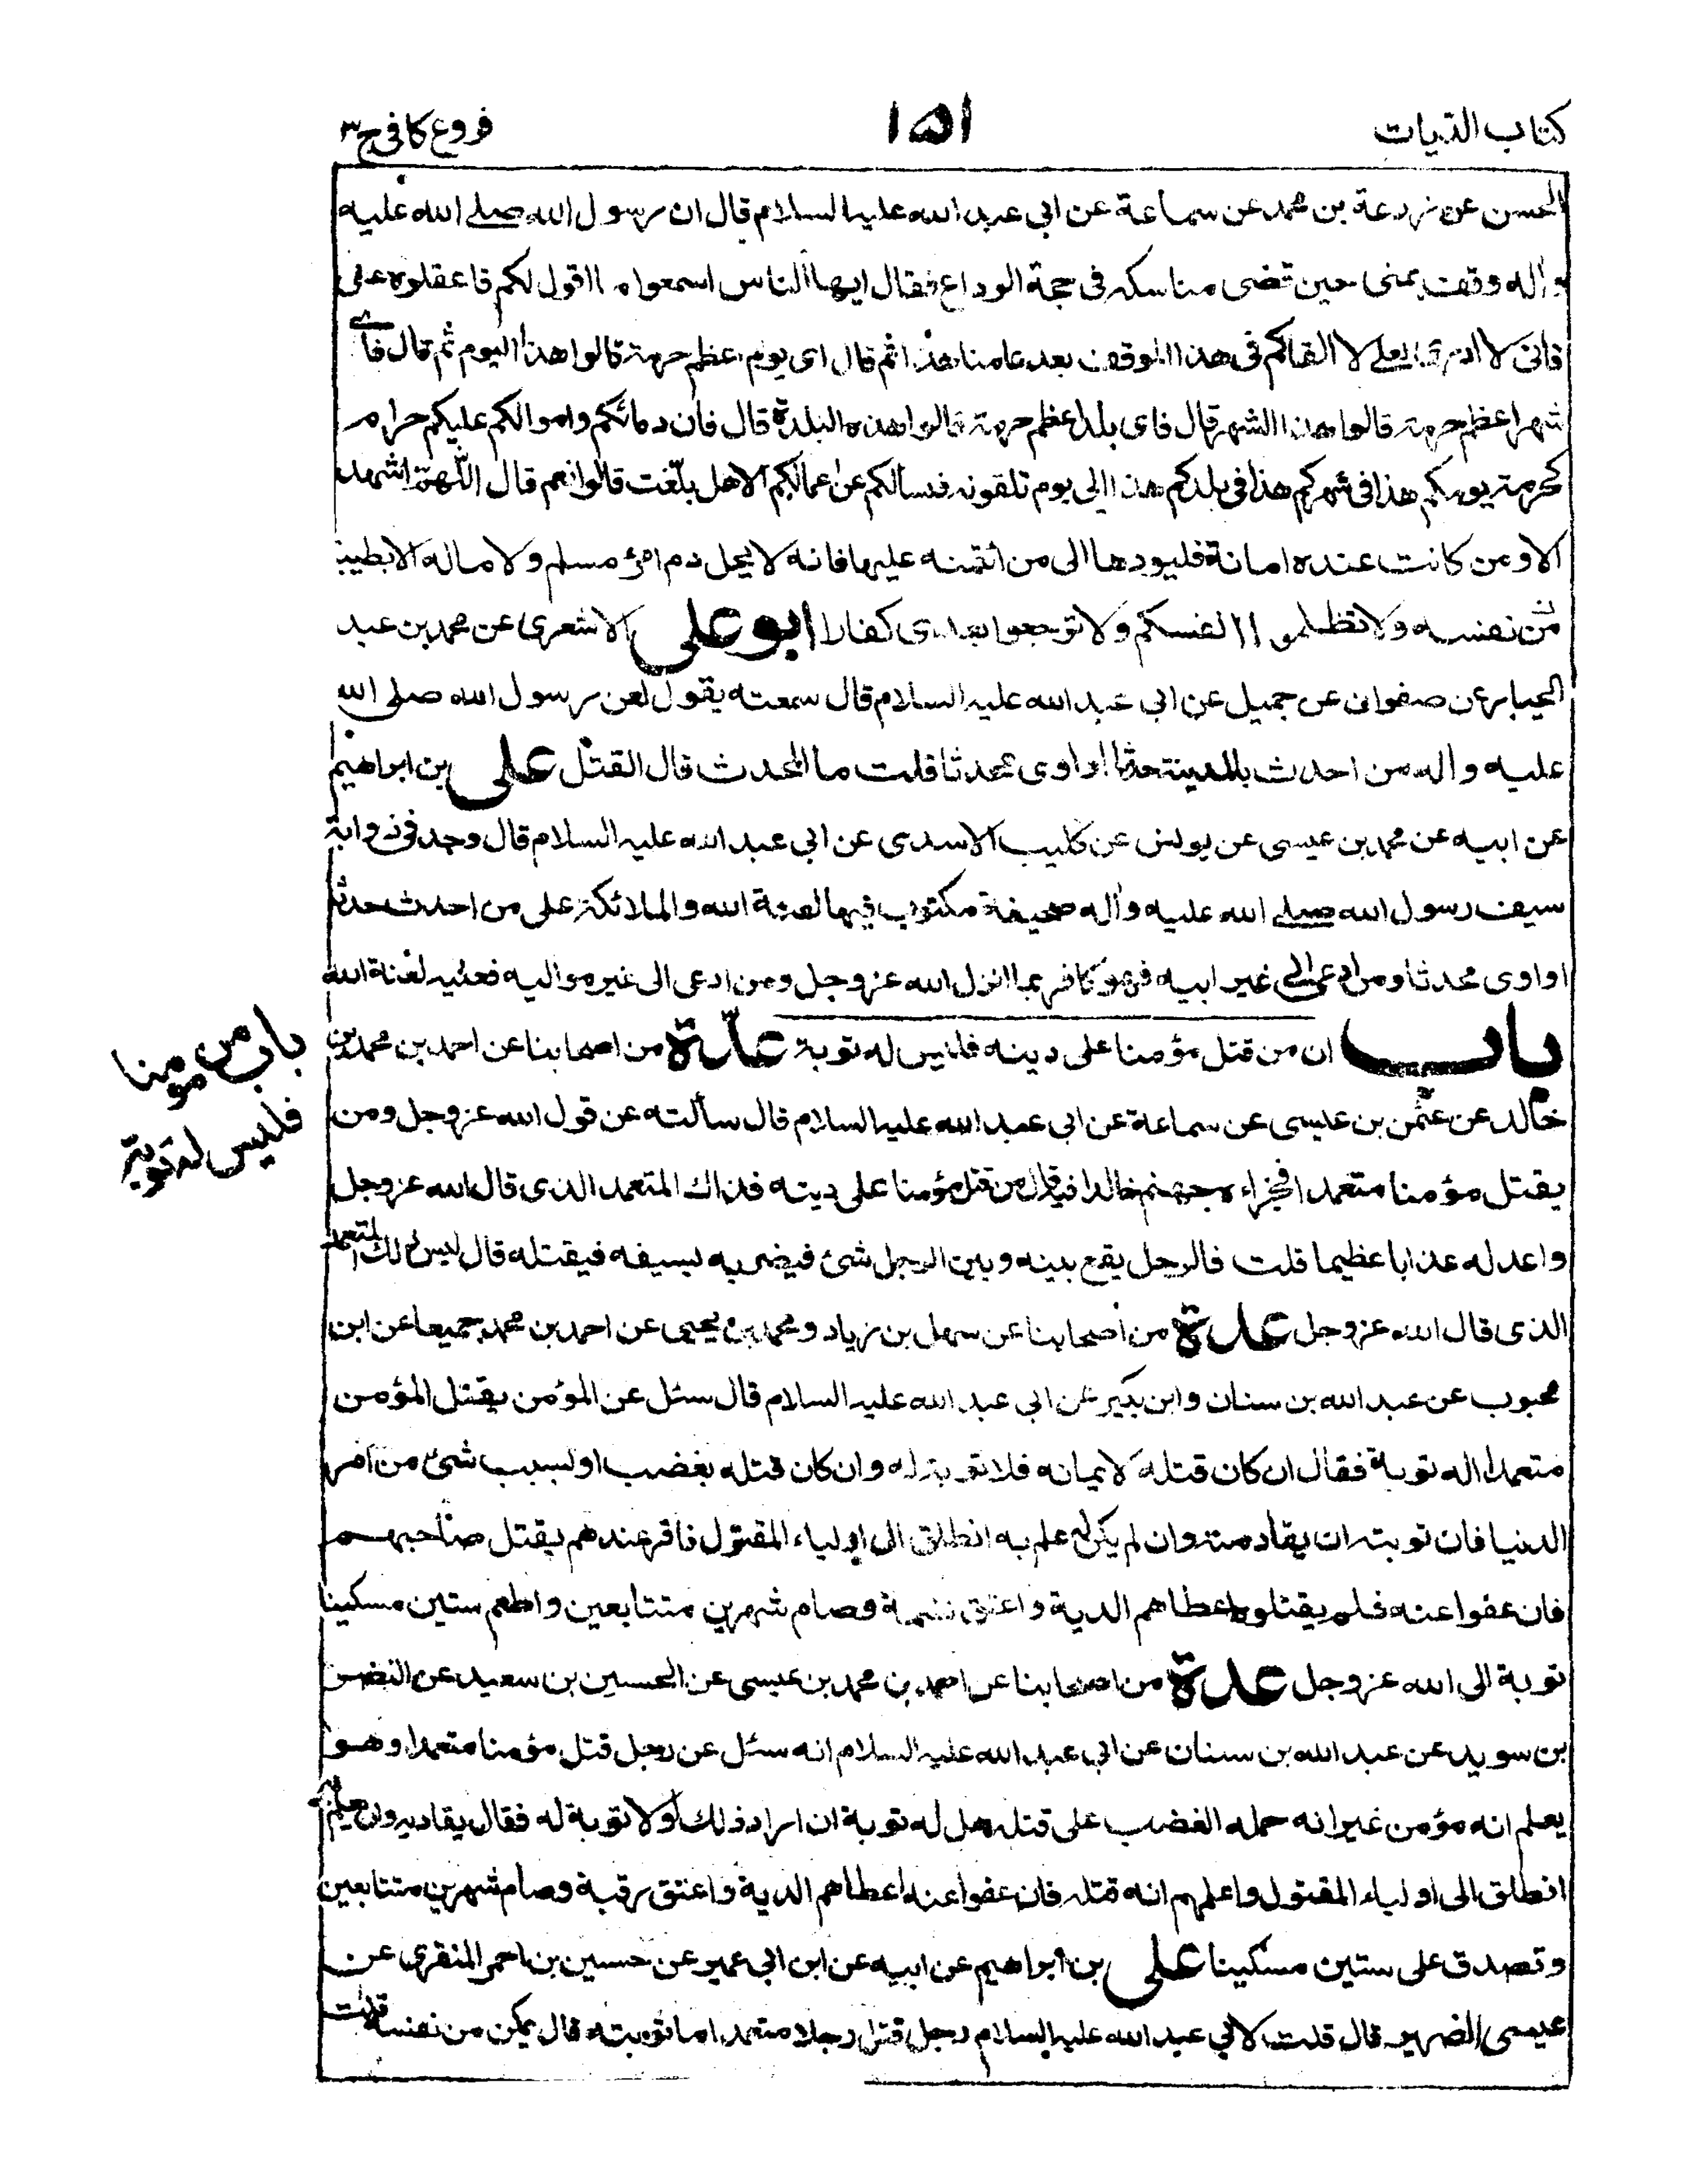 كتاب الديات
١٥١
فروع كافى ج٣
الحسن عن زرعة بن محمد عن سماعة عن ابى عبد الله عليه السلام قال ان رسول الله صلے الله عليه
واٰله وقف بمنى حين قضى مناسكه فى حجة الوداع فقال ايها الناس اسمعوا ما اقول لكم فاعقلوه عنى
فانى لا ادرى لعلے لا القاكم فى هذا الموقف بعد عامنا هذا ثم قال اى يوم اعظم حرمة قالوا هذا اليوم ثم قال فاے
شهر اعظم حرمة قالوا هذا الشهر قال فاى بلد اعظم حرمة قالوا هذه البلدة قال فان دمائكم واموالكم عليكم حرام
كحرمة يومكم هذا فى شهركم هذا فى بلدكم هذا الى يوم تلقونه فيسألكم عن اعمالكم الا هل بلّغت قالوا نعم قال اللّهمّ اشهد
الا ومن كانت عنده امانة فليودها الى من ائتمنه عليها فانه لا يحل دم امرئ مسلم ولا ماله الا بطيبة
من نفسه ولا تظلموا انفسكم ولا ترجعوا بعدى كفارا ابو على الاشعرى عن محمد بن عبد
الجبار عن صفوان عن جميل عن ابى عبد الله عليه السلام قال سمعته يقول لعن رسول الله صلى الله
عليه واٰله من احدث بالمدينة حدثا او اوى محدثا قلت ما المحدث قال القتل على بن ابراهيم
عن ابيه عن محمد بن عيسى عن يونس عن كليب الاسدى عن ابى عبد الله عليه السلام قال وجد فى ذوابة
سيف رسول الله صلے الله عليه واٰله صحيفة مكتوب فيها لعنة الله والملائكة على من احدث حدثا
او اوى محدثا ومن ادعى الى غير ابيه فهو كافر بما انزل الله عز وجل ومن ادعى الى غير مواليه فعليه لعنة الله
باب ان من قتل مؤمنا على دينه فليس له توبة عدّة من اصحابنا عن احمد بن محمد بن
باب من مومنا
فليس له توبة
خالد عن عثمن بن عيسى عن سماعة عن ابى عبد الله عليه السلام قال سألته عن قول الله عز وجل ومن
يقتل مؤمنا متعمدا فجزاءه جهنم خالدا فيها قال من قتل مؤمنا على دينه فذاك المتعمد الذى قال الله عز وجل
واعد له عذابا عظيما قلت فالرجل يقع بينه وبين الرجل شئ فيضربه بسيفه فيقتله قال ليس ذلك المتعمد
الذى قال الله عز وجل عدة من اصحابنا عن سهل بن زياد ومحمد بن يحيى عن احمد بن محمد جميعا عن ابن
محبوب عن عبد الله بن سنان وابن بكير عن ابى عبد الله عليه السلام قال سئل عن المؤمن يقتل المؤمن
متعمدا اله توبة فقال ان كان قتله لايمانه فلا توبة له وان كان قتله بغضب او لسبب شئ من امر
الدنيا فان توبته ان يقاد منه وان لم يكن علم به انطلق الى اولياء المقتول فاقر عندهم بقتل صاحبهم
فان عفوا عنه فلم يقتلوه اعطاهم الدية واعتق نسمة وصام شهرين متتابعين واطعم ستين مسكينا
توبة الى الله عز وجل عدة من اصحابنا عن احمد بن محمد بن عيسى عن الحسين بن سعيد عن النضر
بن سويد عن عبد الله بن سنان عن ابى عبد الله عليه السلام انه سئل عن رجل قتل مؤمنا متعمدا وهو
يعلم انه مؤمن غير انه حمله الغضب على قتله هل له توبة ان اراد ذلك او لا توبة له فقال يقاد به وان لم يعلم به
انطلق الى اولياء المقتول واعلمهم انه قتله فان عفوا عنه اعطاهم الدية واعتق رقبة وصام شهرين متتابعين
وتصدق على ستين مسكينا على بن ابراهيم عن ابيه عن ابن ابى عمير عن حسين بن احمر المنقرى عن
عيسى الضرير قال قلت لابى عبد الله عليه السلام رجل قتل رجلا متعمدا ما توبته قال يمكن من نفسه قلت